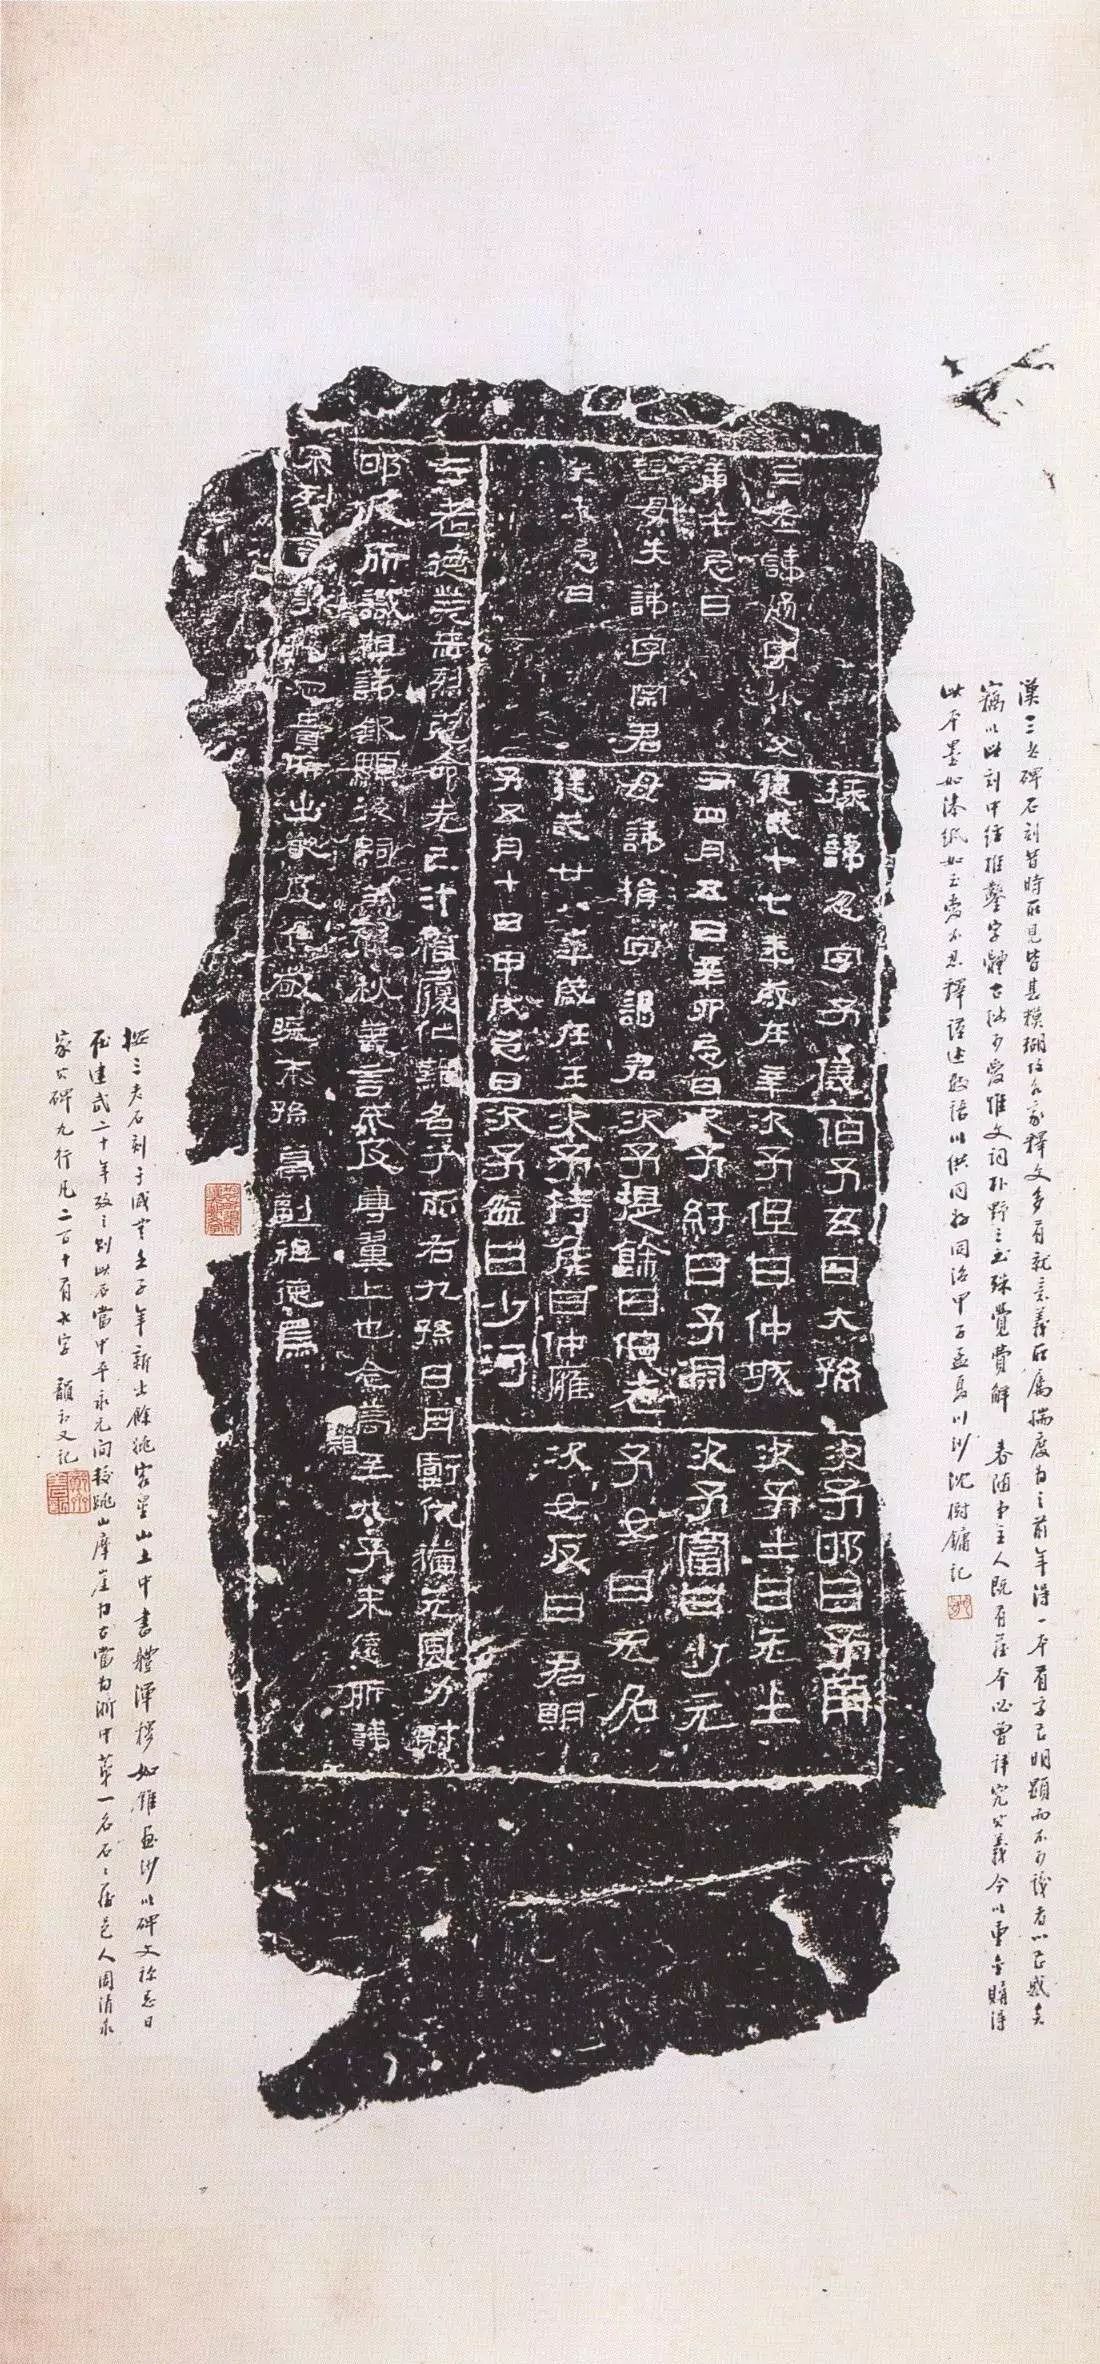 漢三老碑石刻昔時所見皆甚模糊故各家釋文多有就意義所屬揣度為之前年得一本首字已明顯而不可識者以惑矣
竊以此刻中經椎鑿字體古拙可愛惟文詞朴野之至殊覺費解 主人既有藏本必曾詳究其義今以重金購得
此本墨如漆紙如玉愛不忍釋謹述數語以供同好同治甲子孟夏川沙沈樹鏞記
三老諱通字小父
庚午忌日
祖母失諱字宗君
癸未忌日
掾諱忽字子儀
建武十七年歲在辛
丑四月五日辛卯忌日
母諱捐字謁君
建武廿八年歲在壬
子五月十日甲戌忌日
伯子玄曰大孫
次子但曰仲城
次子紆曰子淵
次子提餘曰伯老
次子持侯曰仲雍
次子盆曰少河
次子邯曰子南
次子士曰元士
次子富曰少元
子女曰无名
次女反曰君明
三老德業赫烈克命先己汁稽履仁難名子而右九孫日月虧代猶元風力射
邯及所識祖諱欽顯後嗣蓋春秋義言不及尊翼上也念高祖至九子未遠所諱
不列言事觸忌貴所出嚴及焦敬曉末孫冀副祖德焉
三老石刻于咸豐壬子年新出餘姚客星山土中書體渾穆如錐畫沙以碑文忌日
在建武二十年攷之則此石當中平永元間較跳山摩崖為古當為浙中第一名石石藏邑人周清泉
家其碑九行凡二百十有七字 韻初又記